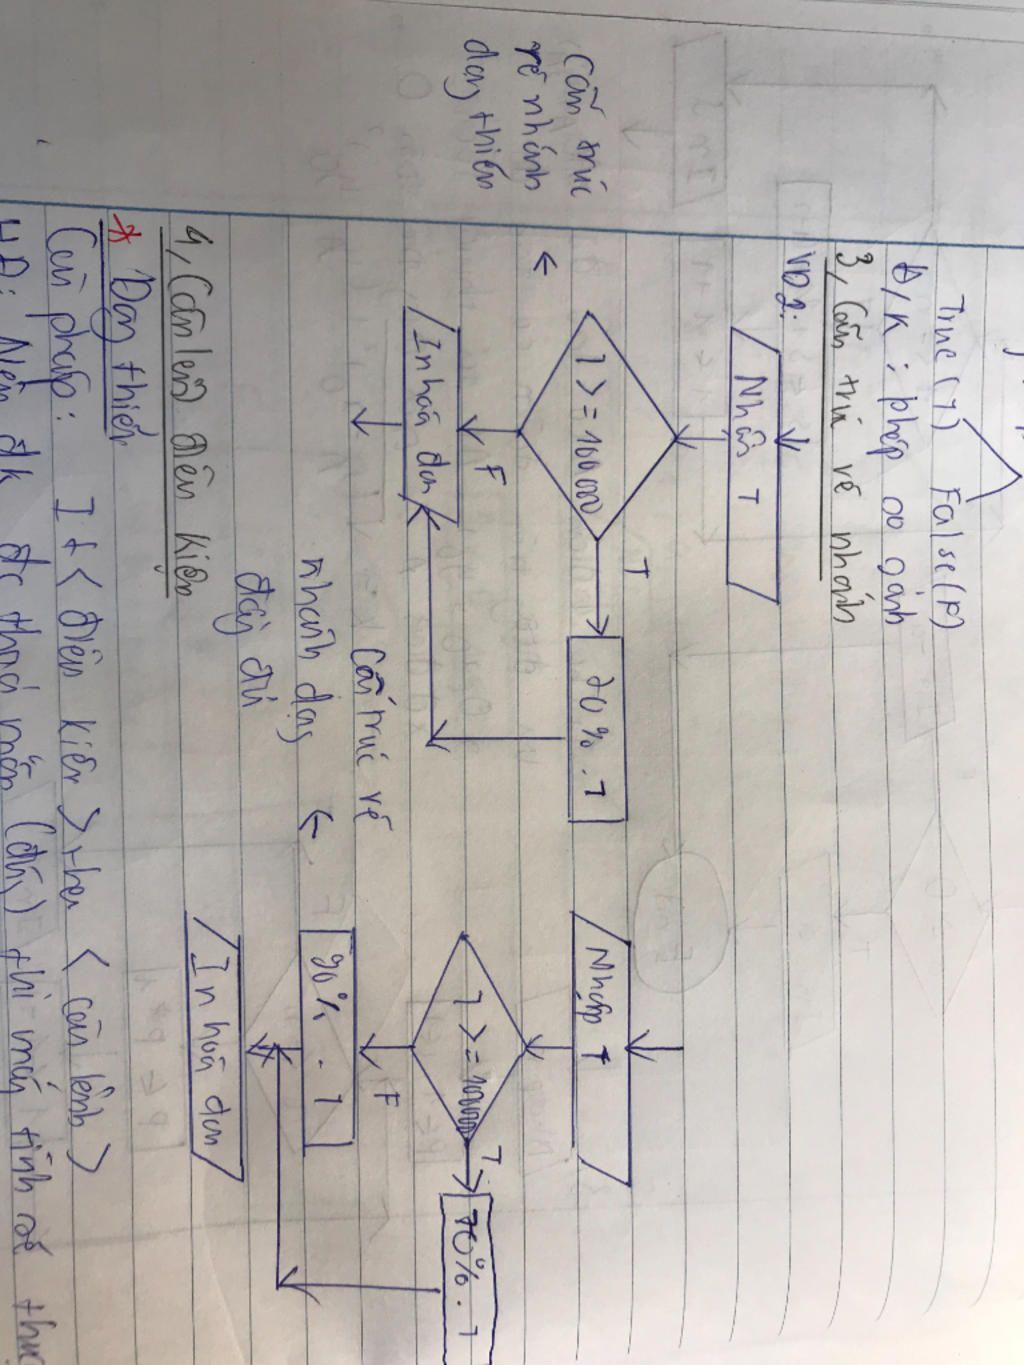 True (T) False (F)
Đ/K : phép so sánh
3, Cấu trúc rẽ nhánh
VD2:
Nhập T
T >= 100000
T
70% . T
F
In hoá đơn
Cấu trúc
rẽ nhánh
dạng thiếu
←
Nhập T
T >= 100000
T
70% . T
F
90% . T
In hoá đơn
Cấu trúc rẽ
nhánh dạng ←
đầy đủ
4, Câu lệnh điều kiện
* Dạng thiếu
Cú pháp: If < điều kiện > then < câu lệnh >
HĐ: Nếu đk đc thoả mãn (đúng) thì máy tính sẽ